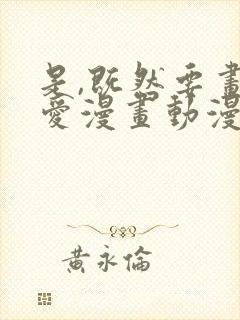 是,既然要畫
愛漫畫動漫
黃永倫